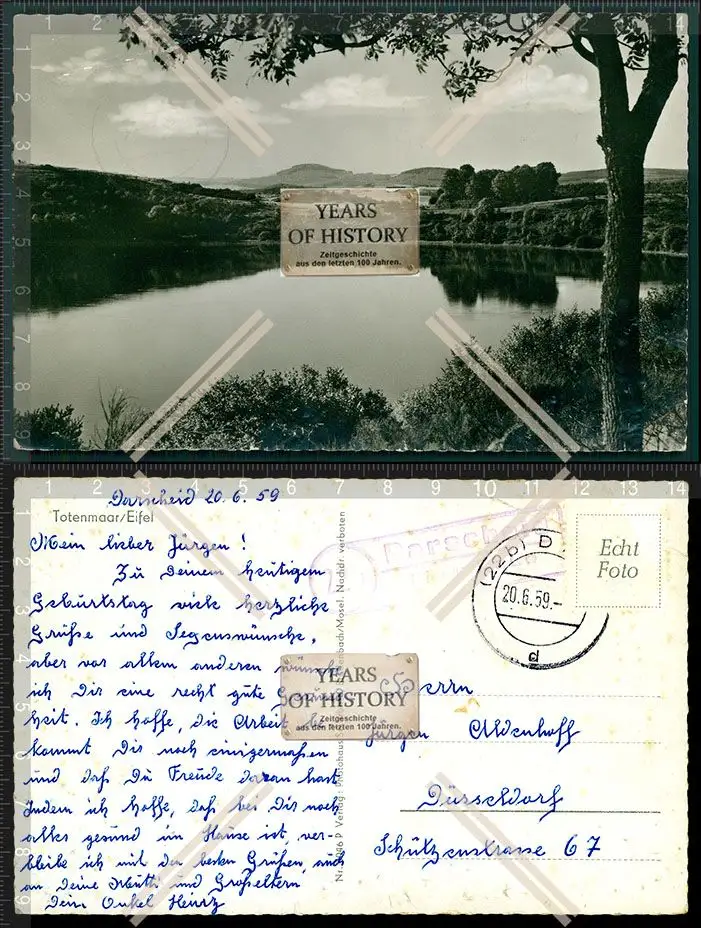 YEARS
OF HISTORY
Zeitgeschichte
aus den letzten 100 Jahren.
Darscheid 20.6.59
Totenmaar/Eifel
Mein lieber Jürgen!
Zu Deinem heutigen
Geburtstag viele herzliche
Grüße und Segenswünsche,
aber vor allem anderen wünsche
ich Dir eine recht gute Gesund
heit. Ich hoffe, die Arbeit be
kommt Dir noch einigermaßen
und daß Du Freude daran hast.
Indem ich hoffe, daß bei Dir noch
alles gesund im Hause ist, ver-
bleibe ich mit den besten Grüßen, auch
an Deine Mutti und Großeltern
Dein Onkel Heinz
Nachdr. verboten
Darscheid
(22b) D
20.6.59.-
d
Echt
Foto
YEARS
OF HISTORY
Zeitgeschichte
aus den letzten 100 Jahren.
Herrn
Jürgen Aldenhoff
Düsseldorf
Schützenstrasse 67